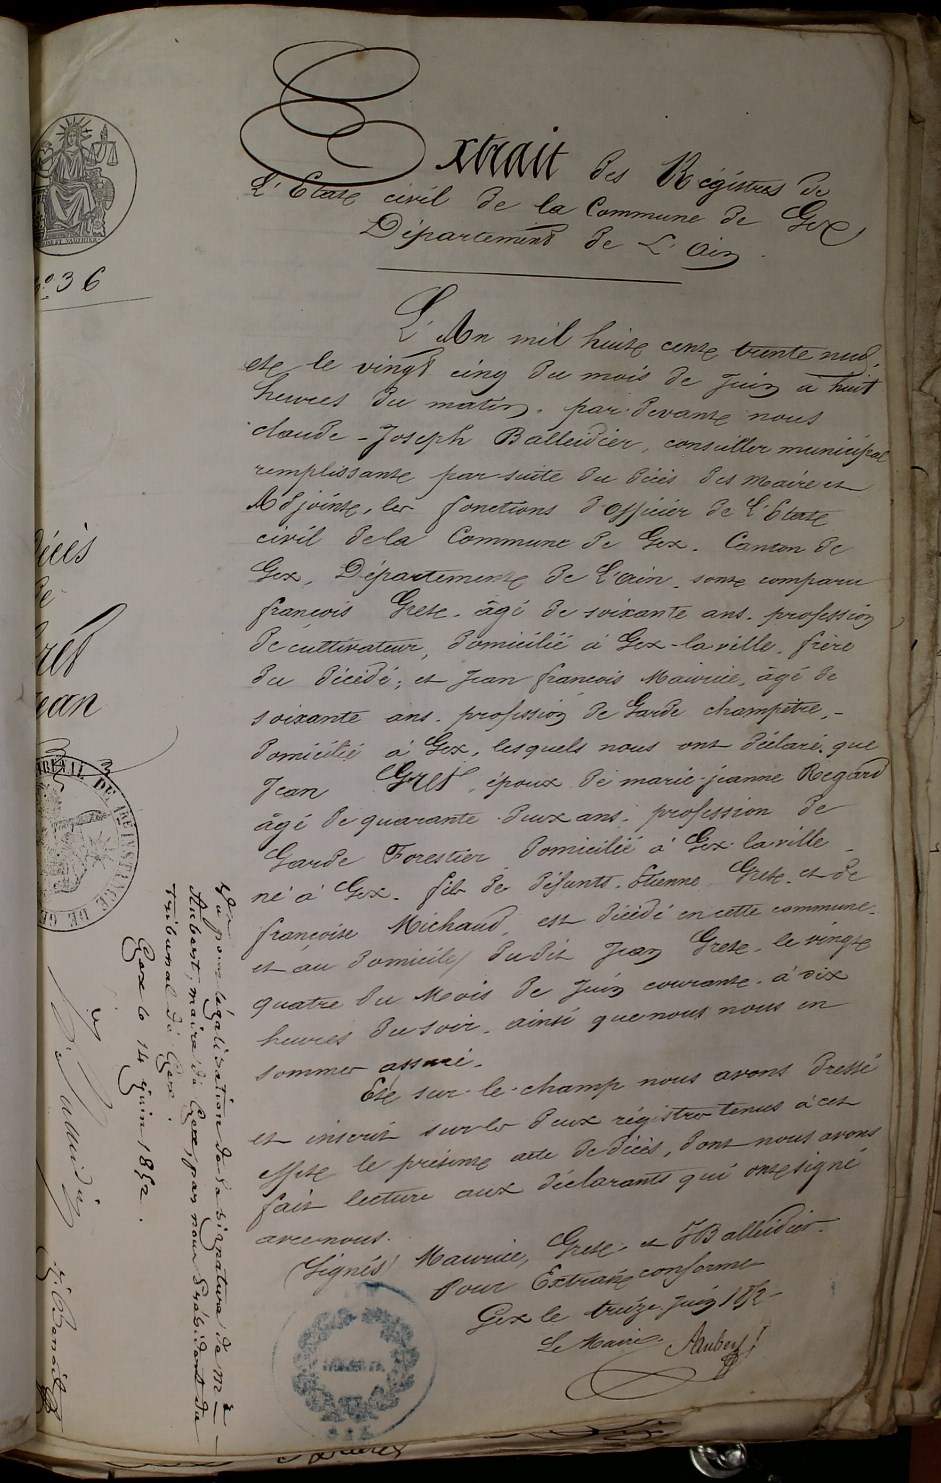 Extrait des Régistres de
L'Etat civil de la Commune de Gex
Département de L'ain
36
L'An mil huit cent trente neuf,
et le vingt cinq du mois de juin à huit
heures du matin. par devant nous
claude-Joseph Balleidier, conseiller municipal
remplissant par suite du décès des maire et
Adjoint, les fonctions d'officier de l'Etat
civil de la Commune de Gex. Canton de
Gex, Département de l'ain. sont comparu
françois Gret. âgé de soixante ans. profession
de cultivateur, domicilié à Gex-la ville. frère
du décédé; et Jean françois Maurice, âgé de
soixante ans. profession de Garde champêtre,
domicilié à Gex, lesquels nous ont déclaré que
Jean Gret, époux de marie-jeanne Regard
âgé de quarante deux ans. profession de
Garde Forestier domicilié à Gex la ville
né à Gex. fils de défunts. Etienne Gret. et de
françoise Michaud, est décédé en cette commune.
et au domicile dudit Jean Gret. le vingt
quatre du Mois de juin courant. à dix
heures du soir. ainsi que nous nous en
sommes assuré.
Et sur-le-champ nous avons dressé
et inscrit sur les deux régistres tenus à cet
effet le présent acte de décès, dont nous avons
fait lecture aux déclarants qui ont signé
avec nous.
(Signés) Maurice, Gret. et Balleidier.
Pour Extrait conforme
Gex le treize juin 1852
Le Maire. Aubert
écès
de
ret
ean
TRIBUNAL DE 1RE INSTANCE DE GE
Vu pour légalisation de la signature de Mr
Aubert, maire de Gex, par nous Président du
Tribunal de Gex.
Gex le 14 juin 1852.